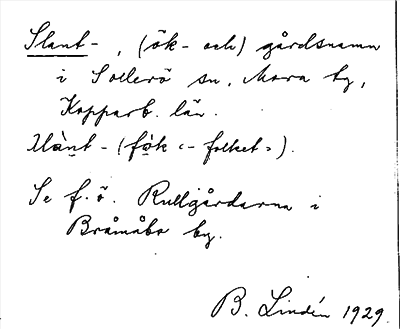 Slant-, (ök- och) gårdsnamn
i Sollerö sn, Mora by,
Kopparb. län.
-(fo̤k «-folket»).
Se f.ö. Rullgårdarna i
Bråmåbo by.
B. Lindén 1929.